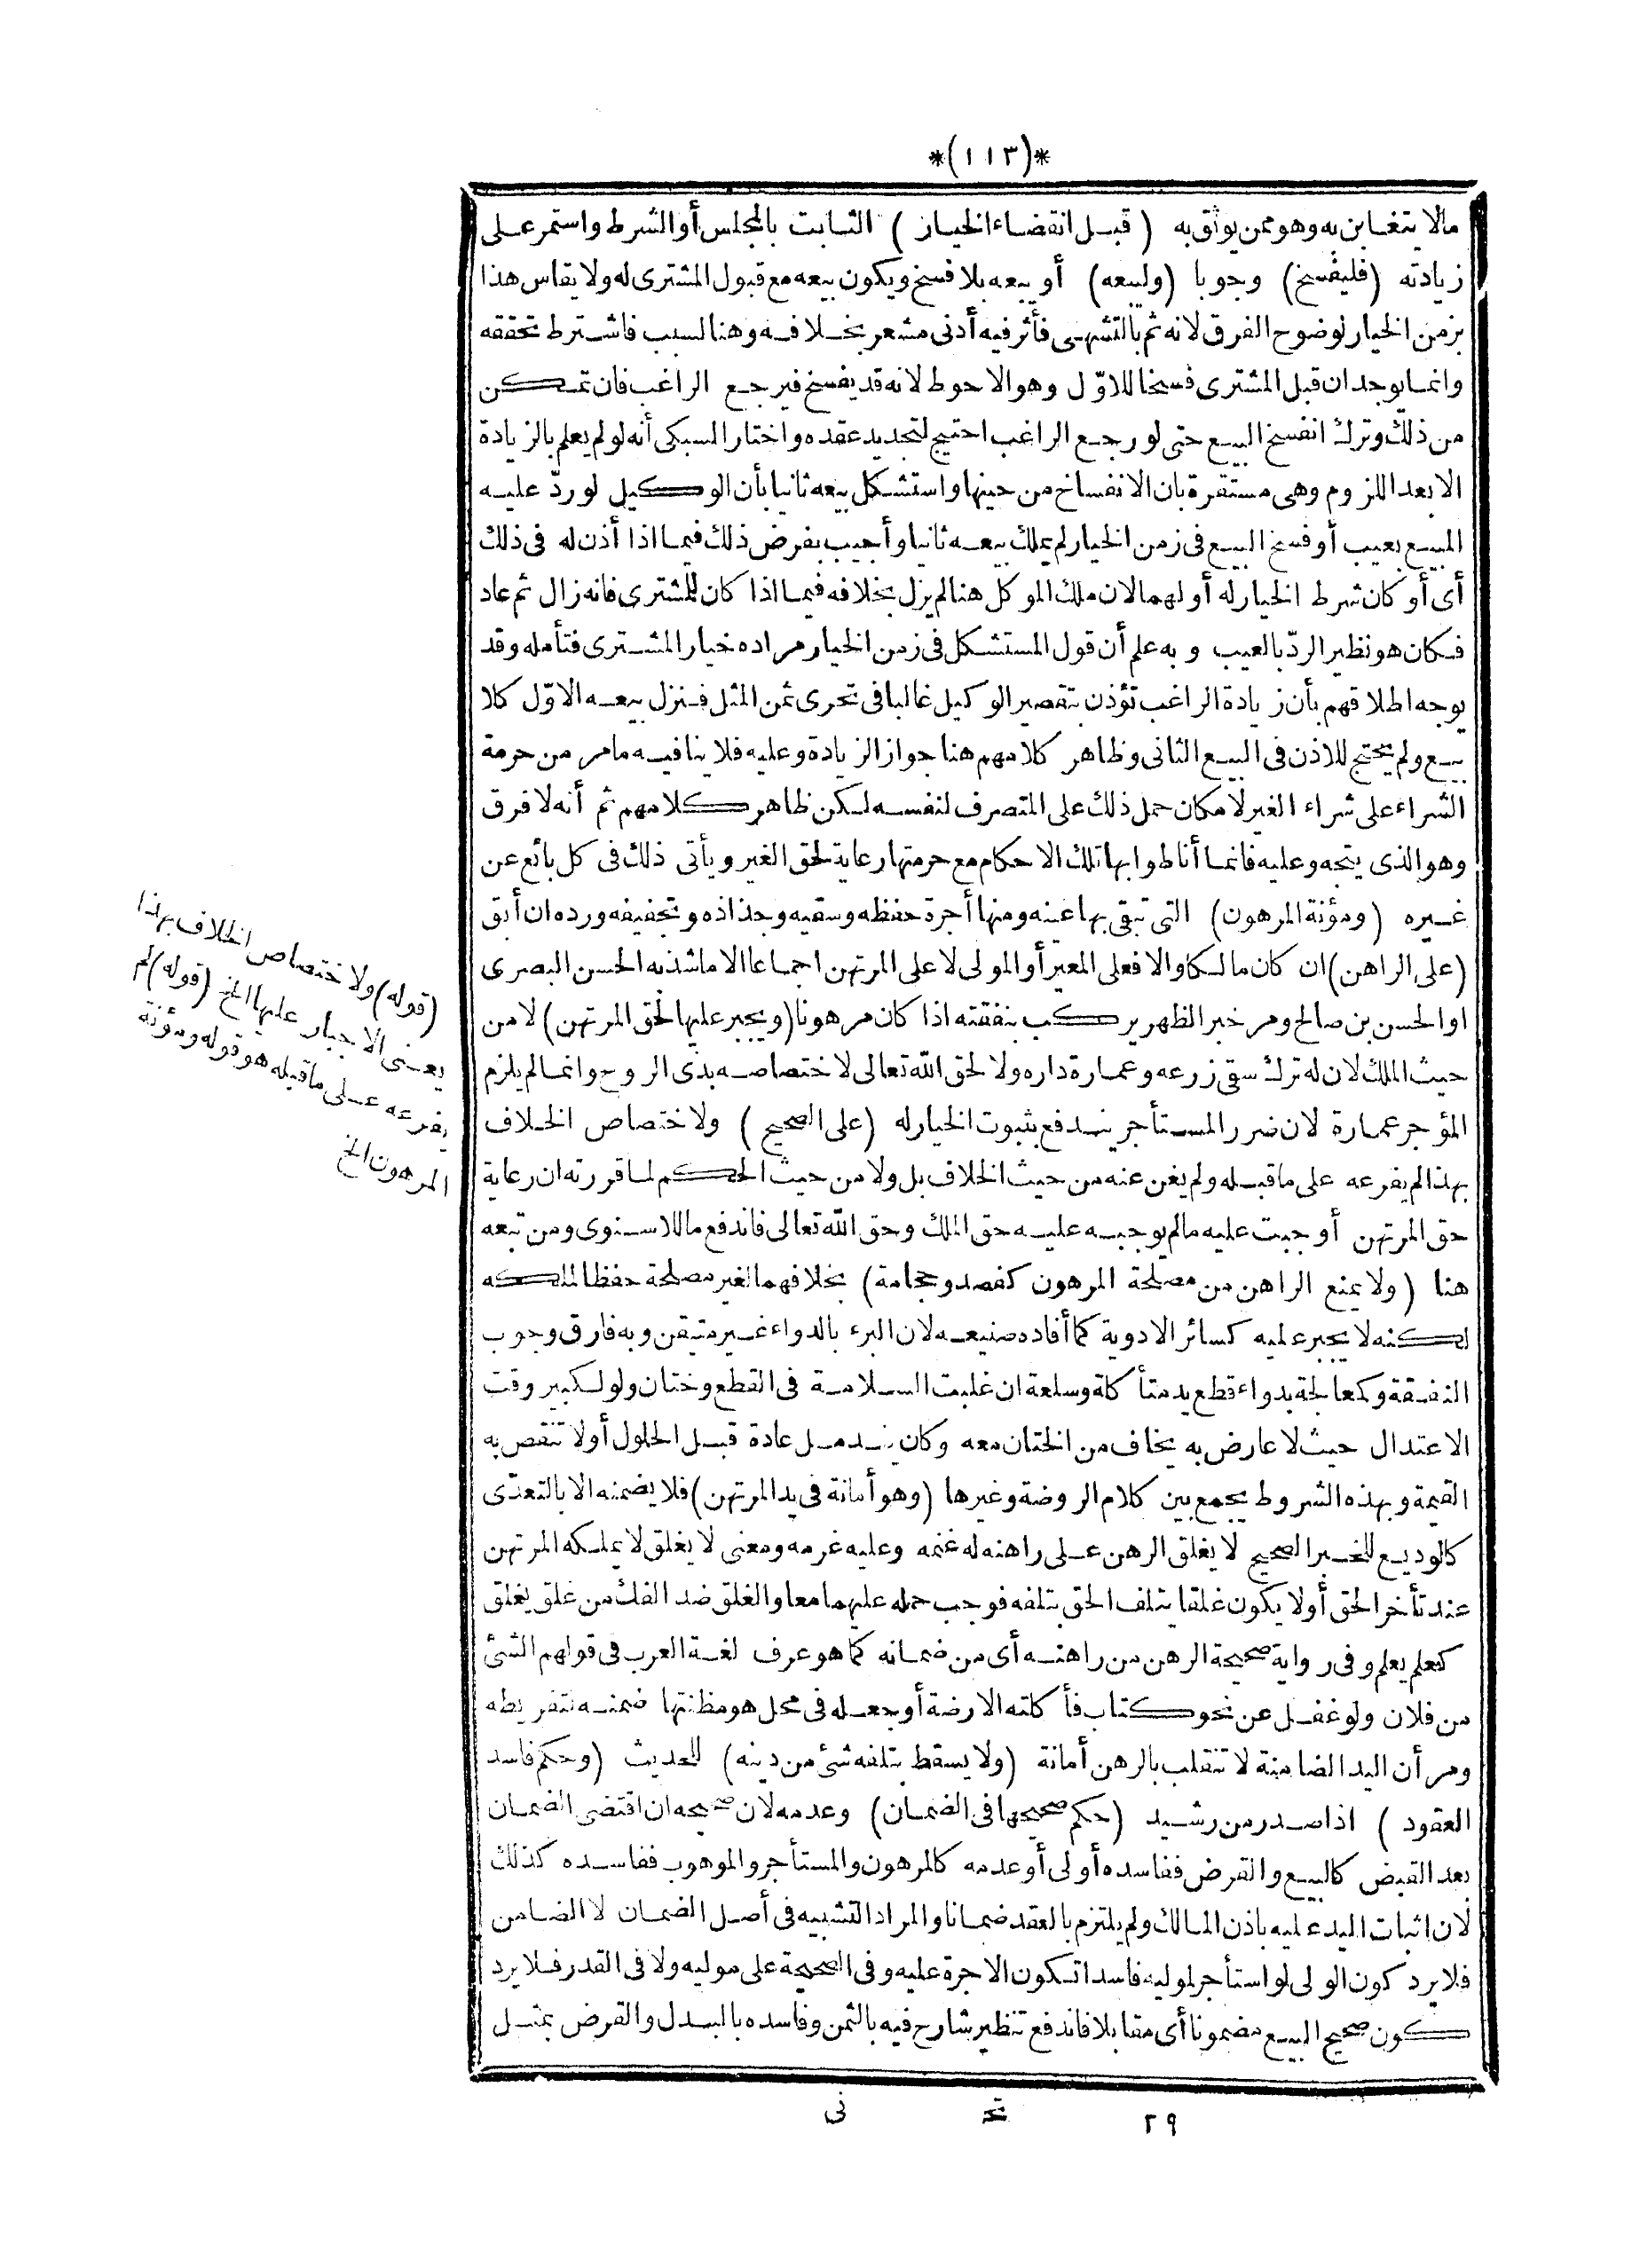 *(١١٣)*
مالا يتغابن به وهو ممن يوثق به (قبل انقضاء الخيار) الثابت بالمجلس أو الشرط واستمر على
زيادته (فليفسخ) وجوبا (وليبعه) أو يبعه بلا فسخ ويكون بيعه مع قبول المشترى له ولا يقاس هذا
بزمن الخيار لوضوح الفرق لانه ثم بالتشهى فأثر فيه أدنى مشعر بخلافه وهنا لسبب فاشترط تحققه
وانما يوجد ان قبل المشترى فسخا للاوّل وهو الاحوط لانه قد يفسخ فيرجع الراغب فان تمكن
من ذلك وترك انفسخ البيع حتى لو رجع الراغب احتيج لتجديد عقده واختار السبكى أنه لو لم يعلم بالزيادة
الا بعد اللزوم وهى مستقرة بان الانفساخ من حينها واستشكل بيعه ثانيا بأن الوكيل لو ردّ عليه
المبيع بعيب أو فسخ البيع فى زمن الخيار لم يملك بيعه ثانيا وأجيب بفرض ذلك فيما اذا أذن له فى ذلك
أى أو كان شرط الخيار له أو لهما لان ملك الموكل هنا لم يزل بخلافه فيما اذا كان للمشترى فانه زال ثم عاد
فكان هو نظير الردّ بالعيب وبه علم أن قول المستشكل فى زمن الخيار مراده خيار المشترى فتأمله وقد
يوجه اطلاقهم بأن زيادة الراغب تؤذن بتقصير الوكيل غالبا فى تحرى ثمن المثل فنزل بيعه الاوّل كلا
بيع ولم يحتج للاذن فى البيع الثانى وظاهر كلامهم هنا جواز الزيادة وعليه فلا ينافيه ما مر من حرمة
الشراء على شراء الغير لامكان حمل ذلك على المتصرف لنفسه لكن ظاهر كلامهم ثم أنه لا فرق
وهو الذى يتجه وعليه فانما أناطوا بها تلك الاحكام مع حرمتها رعاية لحق الغير ويأتى ذلك فى كل بائع عن
غيره (ومؤنة المرهون) التى تبقى بها عينه ومنها أجرة حفظه وسقيه وجذاذه وتجفيفه ورده ان أبق
(على الراهن) ان كان مالكا والا فعلى المعير أو المولى لا على المرتهن اجماعا الا ما شذ به الحسن البصرى
او الحسن بن صالح ومر خبر الظهر يركب بنفقته اذا كان مرهونا (ويجبر عليها لحق المرتهن) لا من
حيث الملك لان له ترك سقى زرعه وعمارة داره ولا لحق الله تعالى لاختصاصه بذى الروح وانما لم يلزم
المؤجر عمارة لان ضرر المستأجر يندفع بثبوت الخيار له (على الصحيح) ولاختصاص الخلاف
بهذا لم يفرعه على ما قبله ولم يغن عنه من حيث الخلاف بل ولا من حيث الحكم لما قررته ان رعاية
حق المرتهن أوجبت عليه ما لم يوجبه عليه حق الملك وحق الله تعالى فاندفع ما للاسنوى ومن تبعه
هنا (ولا يمنع الراهن من مصلحة المرهون كفصد وحجامة) بخلافهما لغير مصلحة حفظا لملكه
لكنه لا يجبر عليه كسائر الادوية كما أفاده صنيعه لان البرء بالدواء غير متيقن وبه فارق وجوب
النفقة وكمعالجة بدواء قطع يد متأكلة وسلعة ان غلبت السلامة فى القطع وختان ولو لكبير وقت
الاعتدال حيث لا عارض به يخاف من الختان معه وكان يندمل عادة قبل الحلول أو لا تنقص به
القيمة وبهذه الشروط يجمع بين كلام الروضة وغيرها (وهو أمانة فى يد المرتهن) فلا يضمنه الا بالتعدّى
كالوديع للخبر الصحيح لا يغلق الرهن على راهنه له غنمه وعليه غرمه ومعنى لا يغلق لا يملكه المرتهن
عند تأخر الحق أو لا يكون غلقا يتلف الحق بتلفه فوجب حمله عليهما معا والغلق ضد الفك من غلق يغلق
كعلم يعلم وفى رواية صحيحة الرهن من راهنه أى من ضمانه كما هو عرف لغة العرب فى قولهم الشئ
من فلان ولو غفل عن نحو كتاب فأكلته الارضة أو جعله فى محل هو مظنتها ضمنه لتفريطه
ومر أن اليد الضامنة لا تنقلب بالرهن أمانة (ولا يسقط بتلفه شئ من دينه) للحديث (وحكم فاسد
العقود) اذا صدر من رشيد (حكم صحيحها فى الضمان) وعدمه لان صحيحه ان اقتضى الضمان
بعد القبض كالبيع والقرض ففاسده أولى أو عدمه كالمرهون والمستأجر والموهوب ففاسده كذلك
لان اثبات اليد عليه باذن المالك ولم يلتزم بالعقد ضمانا والمراد التشبيه فى أصل الضمان لا الضامن
فلا يرد كون الولى لو استأجر لموليه فاسدا تكون الاجرة عليه وفى الصحيحة على موليه ولا فى القدر فلا يرد
كون صحيح البيع مضمونا أى مقابلا فاندفع تنظير شارح فيه بالثمن وفاسده بالبدل والقرض بمثل
٢٩ تحـ نى
(قوله) ولاختصاص الخلاف بهذا
يعنى الاجبار عليها الخ (قوله) لم
يفرعه على ما قبله هو قوله ومؤنة
المرهون الخ